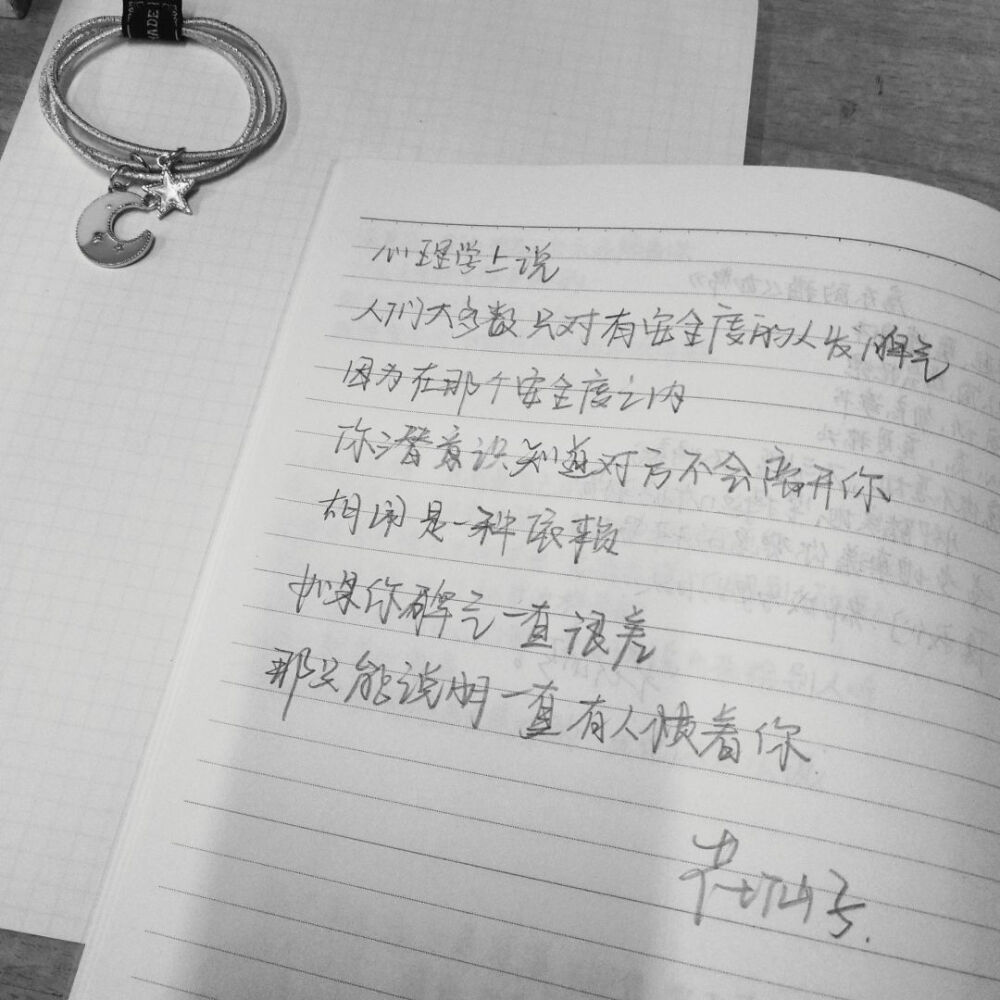 ADE
心理学上说
人们大多数只对有安全度的人发脾气
因为在那个安全度之内
你潜意识知道对方不会离开你
胡闹是一种依赖
如果你脾气一直很差
那只能说明一直有人惯着你
花仙子.